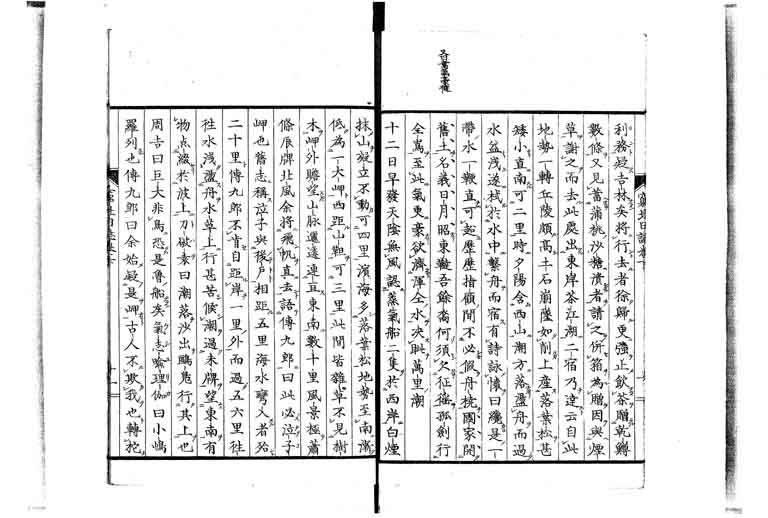 利務殺吉林矣将行去者徐歸更強止飲茶贈乾鱒
數條又見菖蒲桃沙糖漬者請之併箱為贈因與煙
草謝之而去此處出東岸茶江湖二宿乃達云自此
地勢一轉丘陵頗高土石崩墜如削上産落葉松甚
矮小直南可二里時夕陽含西山潮方落盪舟而過
水益浅遂栽於水中繫舟而宿有詩詠懐曰纔是一
帶水一鞭直可起歴歴指顧間不必假舟桡國家開
舊土名義日月昭東韃吾餘裔何須欠征徭孤劍行
全萬至此氣更豪欲濟渾仝水決眦萬里潮
十二日早發天陰無風認蒸氣船二隻於西岸白煙
抹山凝立不動可四里濱海多落葉松地勢至南漸
低為一大岬西距山靼可三里此間皆雜草不見樹
木岬外瞻望山脉邐迤連亘東南數十里風景極蕭
條辰牌北風余将飛帆直去語傳九郎曰此必泣子
岬也舊志称泣子與後戸相距五里海水彎入者殆
二十里傳九郎不肯自距岸一里外而過五六里徃
徃水浅盪舟水草上行甚苦候潮過未牌望東南有
物点綴於波上刀祢素曰潮落沙出鴎鳧行其上也
周吉曰巨大非鳥恐是魯船矣氣志喩理伽曰小嶋
羅列也傳九郎曰余始疑是岬古人不欺我也轉柁